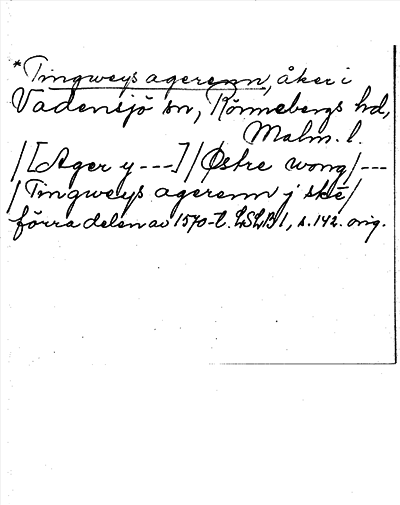 *Tingweys agerenn, åker i
Vadensjö sn, Rönnebergs hd,
Malm. l.
/[Ager y ---]/Østre wong/---
/Tingweys agerenn j skē/
förra delen av 1570-t. LSLB 1, s. 142. orig.